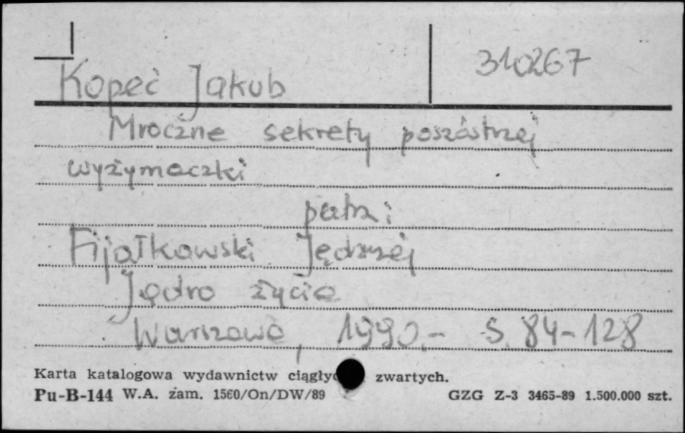 310267
Kopeć Jakub
Mroczne sekrety poszóstnej
wyżymaczki
patrz:
Fijałkowski Jędrzej
Jądro życia
Warszawa, 1990.- S. 84-128
Karta katalogowa wydawnictw ciągły zwartych.
Pu-B-144 W.A. zam. 1560/On/DW/89 GZG Z-3 3465-89 1.500.000 szt.